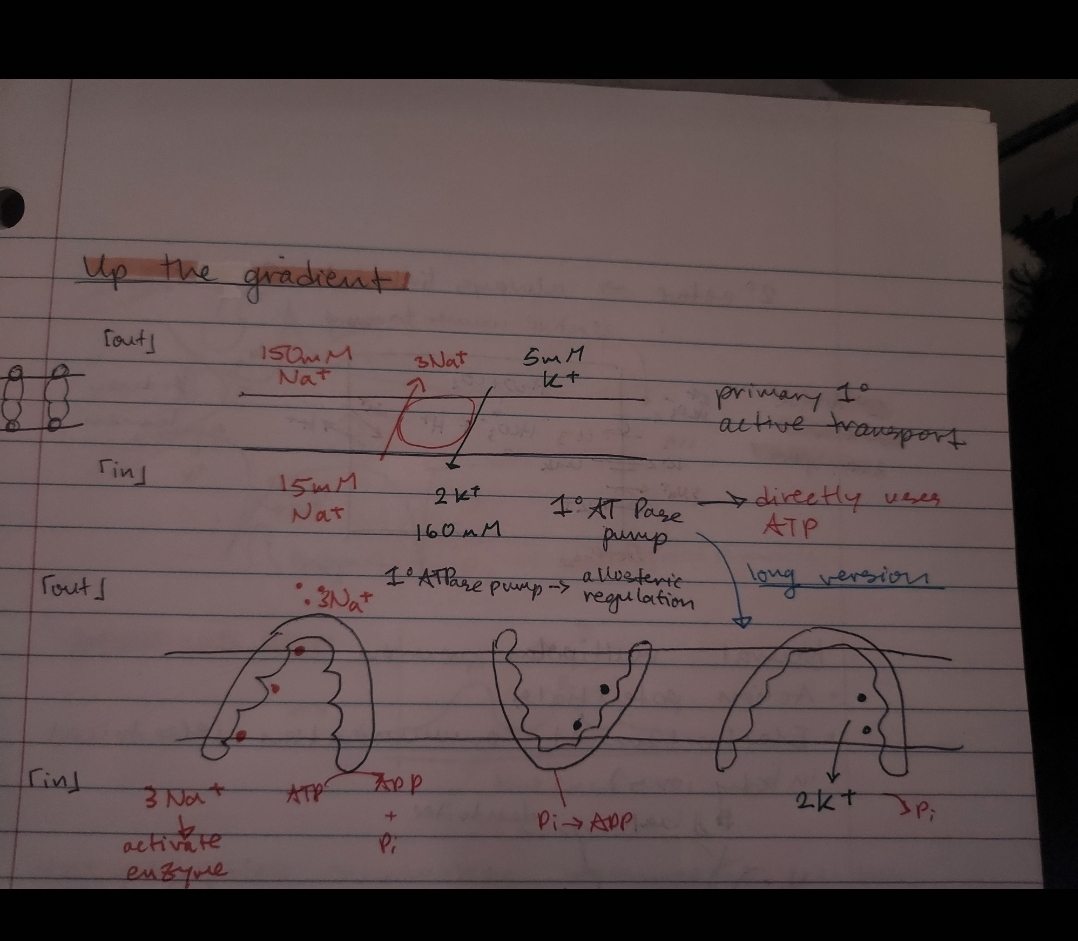 Up the gradient
[out]
150mM
Na+
3Na+
5mM
K+
primary 1°
active transport
[in]
15mM
Na+
2K+
160mM
1° ATPase
pump
→ directly uses
ATP
1° ATPase pump → allosteric
regulation
long version
[out]
3Na+
[in]
3Na+
activate
enzyme
ATP
ADP
+
Pi
Pi → ADP
2K+
Pi